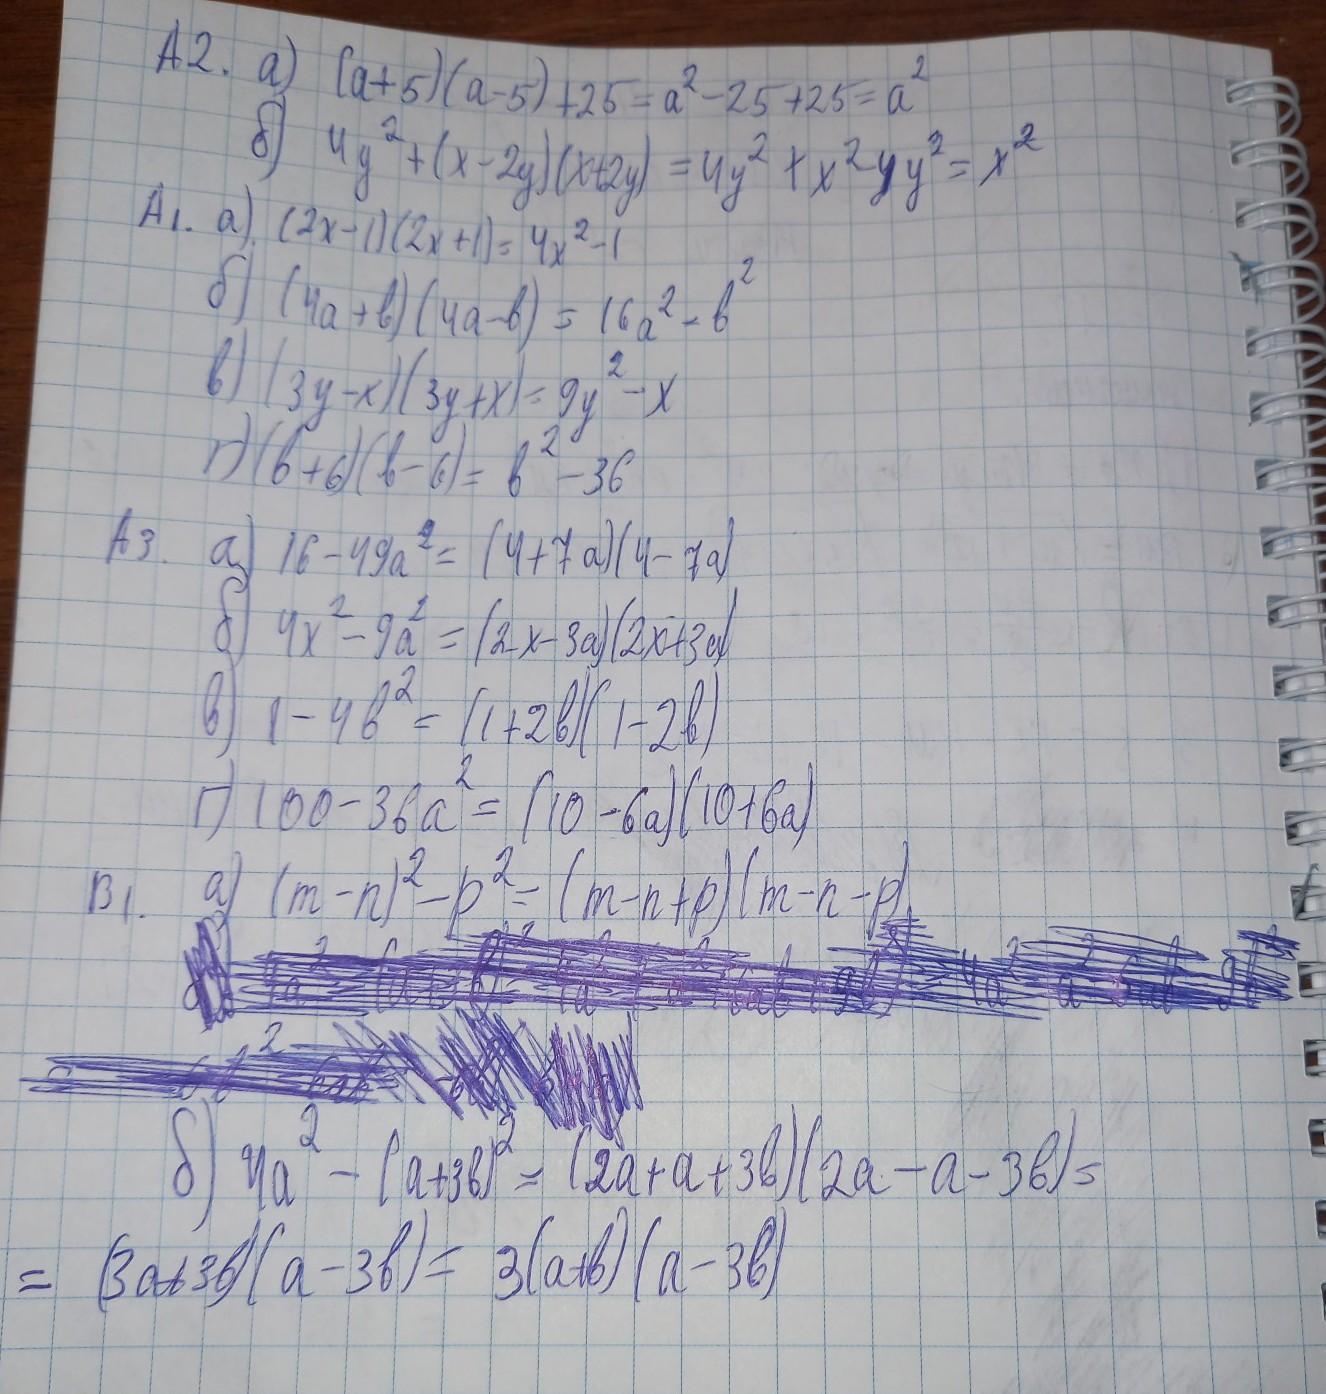 А2. а) (a+5)(a-5)+25=a²-25+25=a²
б) 4y²+(x-2y)(x+2y)=4y²+x²-4y²=x²
А1. а) (2x-1)(2x+1)=4x²-1
б) (4a+b)(4a-b)=16a²-b²
в) (3y-x)(3y+x)=9y²-x
г) (b+6)(b-6)=b²-36
А3. а) 16-49a²=(4+7a)(4-7a)
б) 4x²-9a²=(2x-3a)(2x+3a)
в) 1-4b²=(1+2b)(1-2b)
г) 100-36a²=(10-6a)(10+6a)
В1. а) (m-n)²-p²=(m-n+p)(m-n-p)
б) 4a²-(a+3b)²=(2a+a+3b)(2a-a-3b)=
=(3a+3b)(a-3b)=3(a+b)(a-3b)